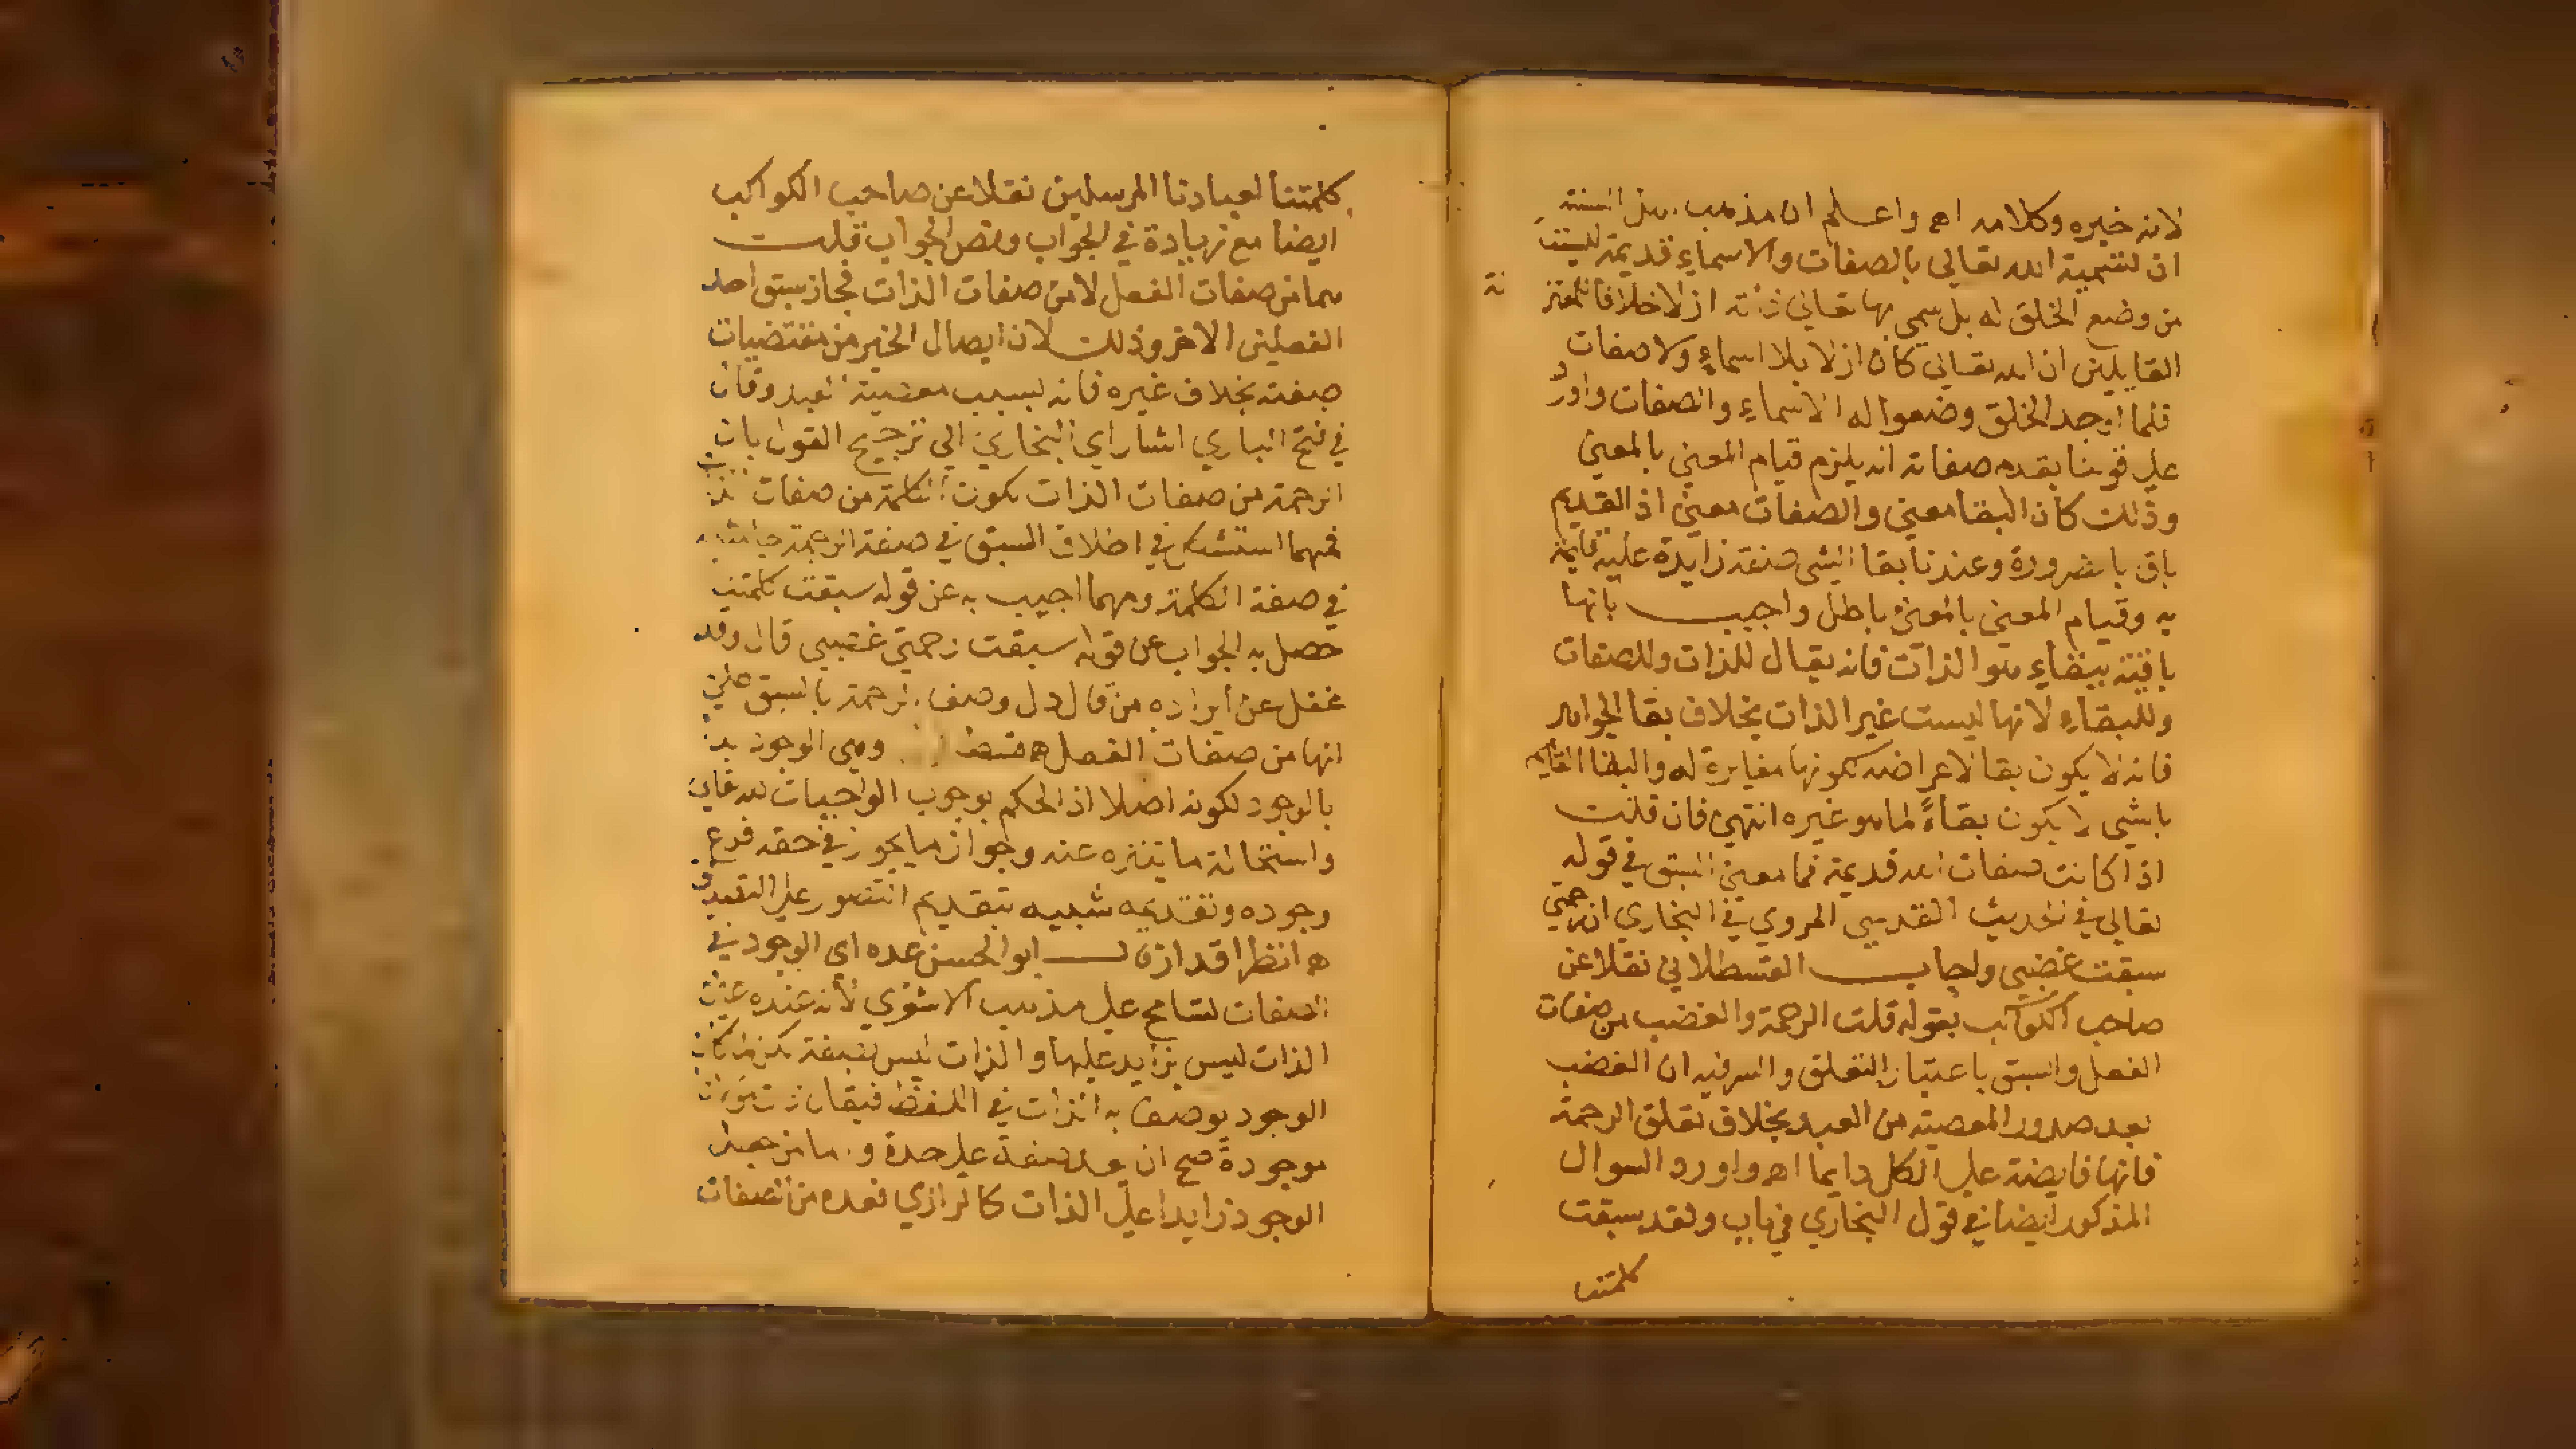 لانه خبره وكلامه اه واعلم ان مذهب اهل السنة
ان تسمية الله تعالى بالصفات والاسماء قديمة ليست
من وضع الخلق له بل سمي بها تعالى ذاته ازلا خلافا للمعتز
لة
القايلين ان الله تعالى كان ازلا بلا اسماء ولا صفات
فلما اوجد الخلق وضعوا له الاسماء والصفات واورد
علي قولنا بقدم صفاته انه يلزم قيام المعني بالمعني
وذلك كان البقا معني والصفات معني اذ القديم
باق بالضرورة وعندنا بقا الشي صفة زايدة عليه قايمة
به وقيام المعني بالمعني باطل واجيب بانها
باقية ببقاء هو الذات فانه بقا للذات وللصفات
وللبقاء ولانها ليست غير الذات بخلاف بقا الجواهر
فانه لا يكون بقا لاعراضه لكونها مغايرة له والبقا القايم
بالشي لا يكون بقاءً لما هو غيره انتهي فان قلت
اذا كانت صفات الله قديمة فما معني السبق في قوله
تعالي في الحديث القدسي المروي في البخاري ان رحمتي
سبقت غضبي واجاب القسطلاني نقلا عن
صاحب الكواكب بقوله قلت الرحمة والغضب من صفات
الفعل والسبق باعتبار التعلق والسر فيه ان الغضب
بعد صدور المعصية من العبد بخلاف تعلق الرحمة
فانها فايضة علي الكل دايما اه واورد السوال
المذكور ايضا في قول البخاري في باب ولقد سبقت
كلمتنا
كلمتنا لعبادنا المرسلين نقلا عن صاحب الكواكب
ايضا مع زيادة في الجواب ونص الجواب قلت
هما من صفات الفعل لا من صفات الذات فجاز سبق احد
الفعلين الاخر وذلك لان ايصال الخير من مقتضيات
صفته بخلاف غيره فانه بسبب معصية العبد وقال
في فتح الباري اشار اي البخاري الي ترجيح القول بان
الرحمة من صفات الذات لكون الكلمة من صفات الذات
فمهما استشكل في اطلاق السبق في صفة الرحمة جا مثله
في صفة الكلمة ومهما اجيب به عن قوله سبقت كلمتنا
حصل به الجواب عن قوله سبقت رحمتي غضبي قال وقد
غفل عن ايراده من قال دل وصف الرحمة بالسبق علي
انها من صفات الفعل اه وهي الوجود بدا
بالوجود لكونه اصلا اذ الحكم بوجوب الواجبات لله تعالي
واستحالة ما يتنزه عنه وجواز ما يجوز في حقه فرع
وجوده وتقديمه شبيه بتقديم التصور علي التصديق
اه انظر اقدار ابو الحسن عده اي الوجود في
الصفات تسامح علي مذهب الاشعري لأنه عنده عين
الذات ليس بزايد عليها والذات ليس بصفة لكن لما كان
الوجود يوصف به الذات في اللفظ فيقال ذات الله
موجودة صح ان يعد صفة علي حدة واما من جعل
الوجود زايدا علي الذات كالرازي فعده من الصفات